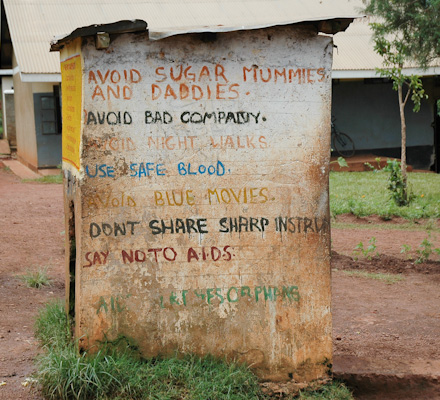 AVOID SUGAR MUMMIES
AND DADDIES.
AVOID BAD COMPANY.
AVOID NIGHT WALKS
USE SAFE BLOOD.
AVOID BLUE MOVIES.
DONT SHARE SHARP INSTRU
SAY NO TO AIDS.